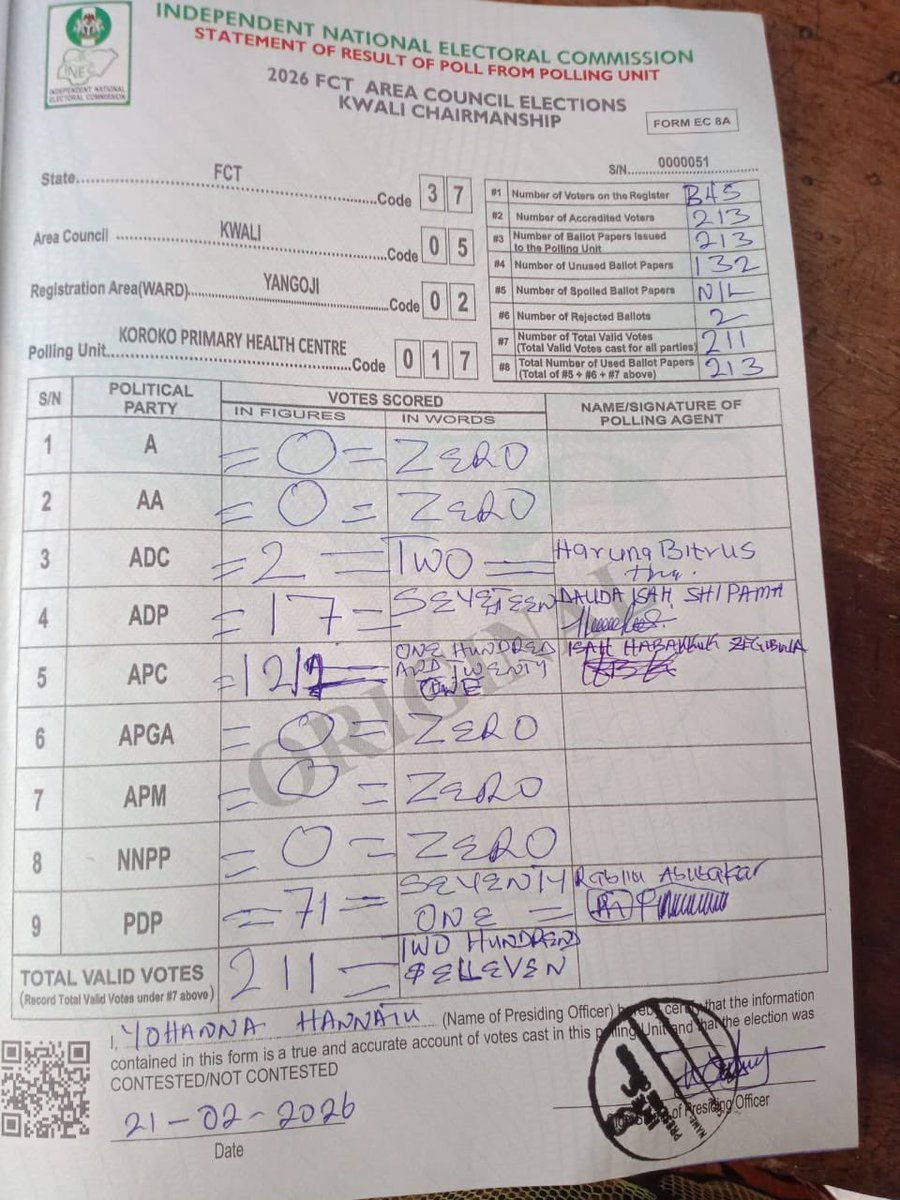 INDEPENDENT NATIONAL ELECTORAL COMMISSION
STATEMENT OF RESULT OF POLL FROM POLLING UNIT
2026 FCT AREA COUNCIL ELECTIONS
KWALI CHAIRMANSHIP
INEC
INDEPENDENT NATIONAL
ELECTORAL COMMISSION
FORM EC 8A
S/N. 0000051
State FCT Code 3 7
Area Council KWALI Code 0 5
Registration Area(WARD) YANGOJI Code 0 2
Polling Unit KOROKO PRIMARY HEALTH CENTRE Code 0 1 7
#1 Number of Voters on the Register 345
#2 Number of Accredited Voters 213
#3 Number of Ballot Papers Issued to the Polling Unit 213
#4 Number of Unused Ballot Papers 132
#5 Number of Spoiled Ballot Papers NIL
#6 Number of Rejected Ballots 2
#7 Number of Total Valid Votes (Total Valid Votes cast for all parties) 211
#8 Total Number of Used Ballot Papers (Total of #5 + #6 + #7 above) 213
S/N POLITICAL PARTY VOTES SCORED NAME/SIGNATURE OF POLLING AGENT
IN FIGURES IN WORDS
1 A =0= ZERO
2 AA =0= ZERO
3 ADC =2= TWO Haruna Bitrus
4 ADP =17= SEVETEEN DAUDA ISAH SHIPAMA
5 APC =121= ONE HUNDRED AND TWENTY ONE ISAH HABAKKUK
6 APGA =0= ZERO
7 APM =0= ZERO
8 NNPP =0= ZERO
9 PDP =71= SEVENTY ONE = Rabiu Abubakar
TOTAL VALID VOTES 211 = TWO HUNDRED & ELLEVEN
(Record Total Valid Votes under #7 above)
ORIGINAL
I, YOHANNA HANNATU (Name of Presiding Officer) hereby certify that the information
contained in this form is a true and accurate account of votes cast in this polling Unit and that the election was
CONTESTED/NOT CONTESTED
21-02-2026
Date
of Presiding Officer